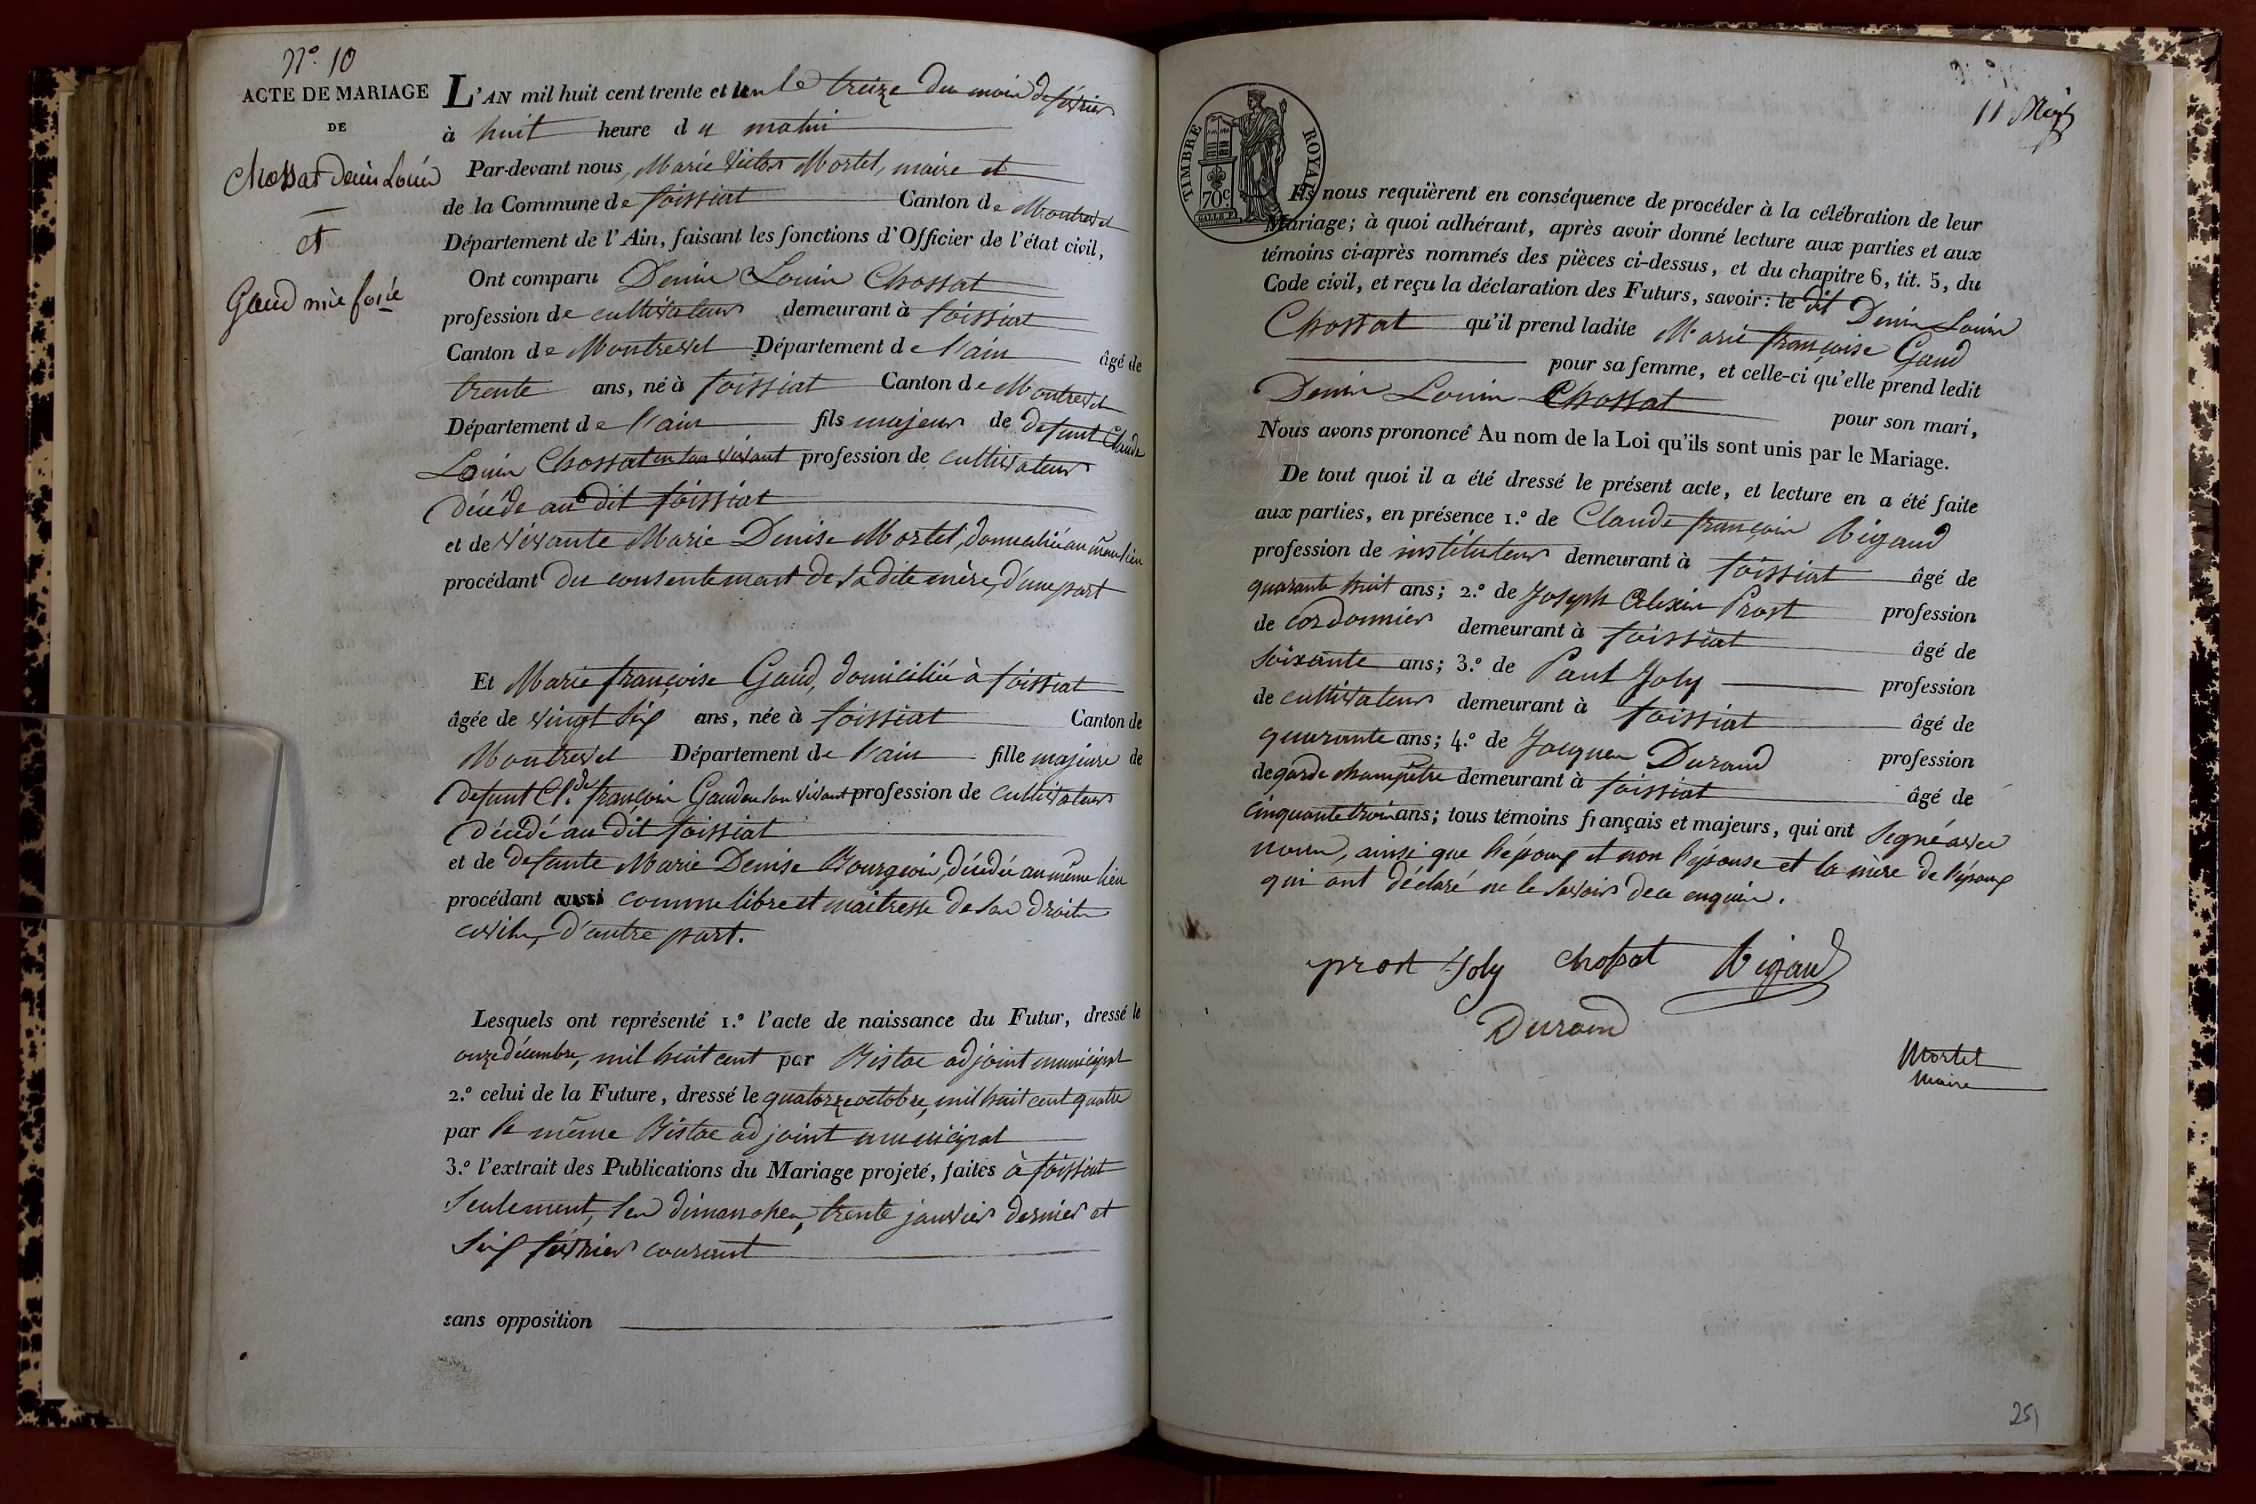 N.º 10
ACTE DE MARIAGE
DE
Chossat Denis Louis
et
Gaud mie foise
L'AN mil huit cent trente et un le treize du mois de février
à huit heure du matin
Par-devant nous, Marie Victor Mortel, maire et
de la Commune de foissiat Canton de Montrevel
Département de l'Ain, faisant les fonctions d'Officier de l'état civil,
Ont comparu Denis Louis Chossat
profession de cultivateur demeurant à foissiat
Canton de Montrevel Département de l'ain âgé de
trente ans, né à foissiat Canton de Montrevel
Département de l'ain fils majeur de defunt Claude
Louis Chossat en son vivant profession de cultivateur
décédé au dit foissiat
et de vivante Marie Denise Mortel, domiciliée au même lieu
procédant du consentement de sa dite mère, d'une part
Et Marie françoise Gaud, domiciliée à foissiat
âgée de vingt six ans, née à foissiat Canton de
Montrevel Département de l'ain fille majeure de
defunt Cl.de françois Gaud en son vivant profession de cultivateur
décédé au dit foissiat
et de defunte Marie Denise Bourgeois, décédée au même lieu
procédant aussi comme libre et maitresse de ses droits
civils, d'autre part.
Lesquels ont représenté 1.º l'acte de naissance du Futur, dressé le
onze décembre, mil huit cent par Bistac adjoint municipal
2.º celui de la Future, dressé le quatorze octobre, mil huit cent quatre
par le même Bistac adjoint municipal
3.º l'extrait des Publications du Mariage projeté, faites à foissiat
Seulement, les dimanches, trente janvier dernier et
Six février courant
sans opposition
11
TIMBRE ROYAL
70 c.
Ils nous requièrent en conséquence de procéder à la célébration de leur
Mariage; à quoi adhérant, après avoir donné lecture aux parties et aux
témoins ci-après nommés des pièces ci-dessus, et du chapitre 6, tit. 5, du
Code civil, et reçu la déclaration des Futurs, savoir: le dit Denis Louis
Chossat qu'il prend ladite Marie françoise Gaud
pour sa femme, et celle-ci qu'elle prend ledit
Denis Louis Chossat pour son mari,
Nous avons prononcé Au nom de la Loi qu'ils sont unis par le Mariage.
De tout quoi il a été dressé le présent acte, et lecture en a été faite
aux parties, en présence 1.º de Claude françois Rigaud
profession de instituteur demeurant à foissiat âgé de
quarante huit ans; 2.º de Joseph Alexis Prost profession
de cordonnier demeurant à foissiat âgé de
soixante ans; 3.º de Paul Joly profession
de cultivateur demeurant à foissiat âgé de
quarante ans; 4.º de Jacques Durand profession
de garde champêtre demeurant à foissiat âgé de
cinquante trois ans; tous témoins français et majeurs, qui ont Signé avec
nous, ainsi que l'époux et non l'épouse et la mère de l'époux
qui ont déclaré ne le savoir de ce enquis.
prost Joly chossat Rigaud
Durand
Mortel
Maire
251